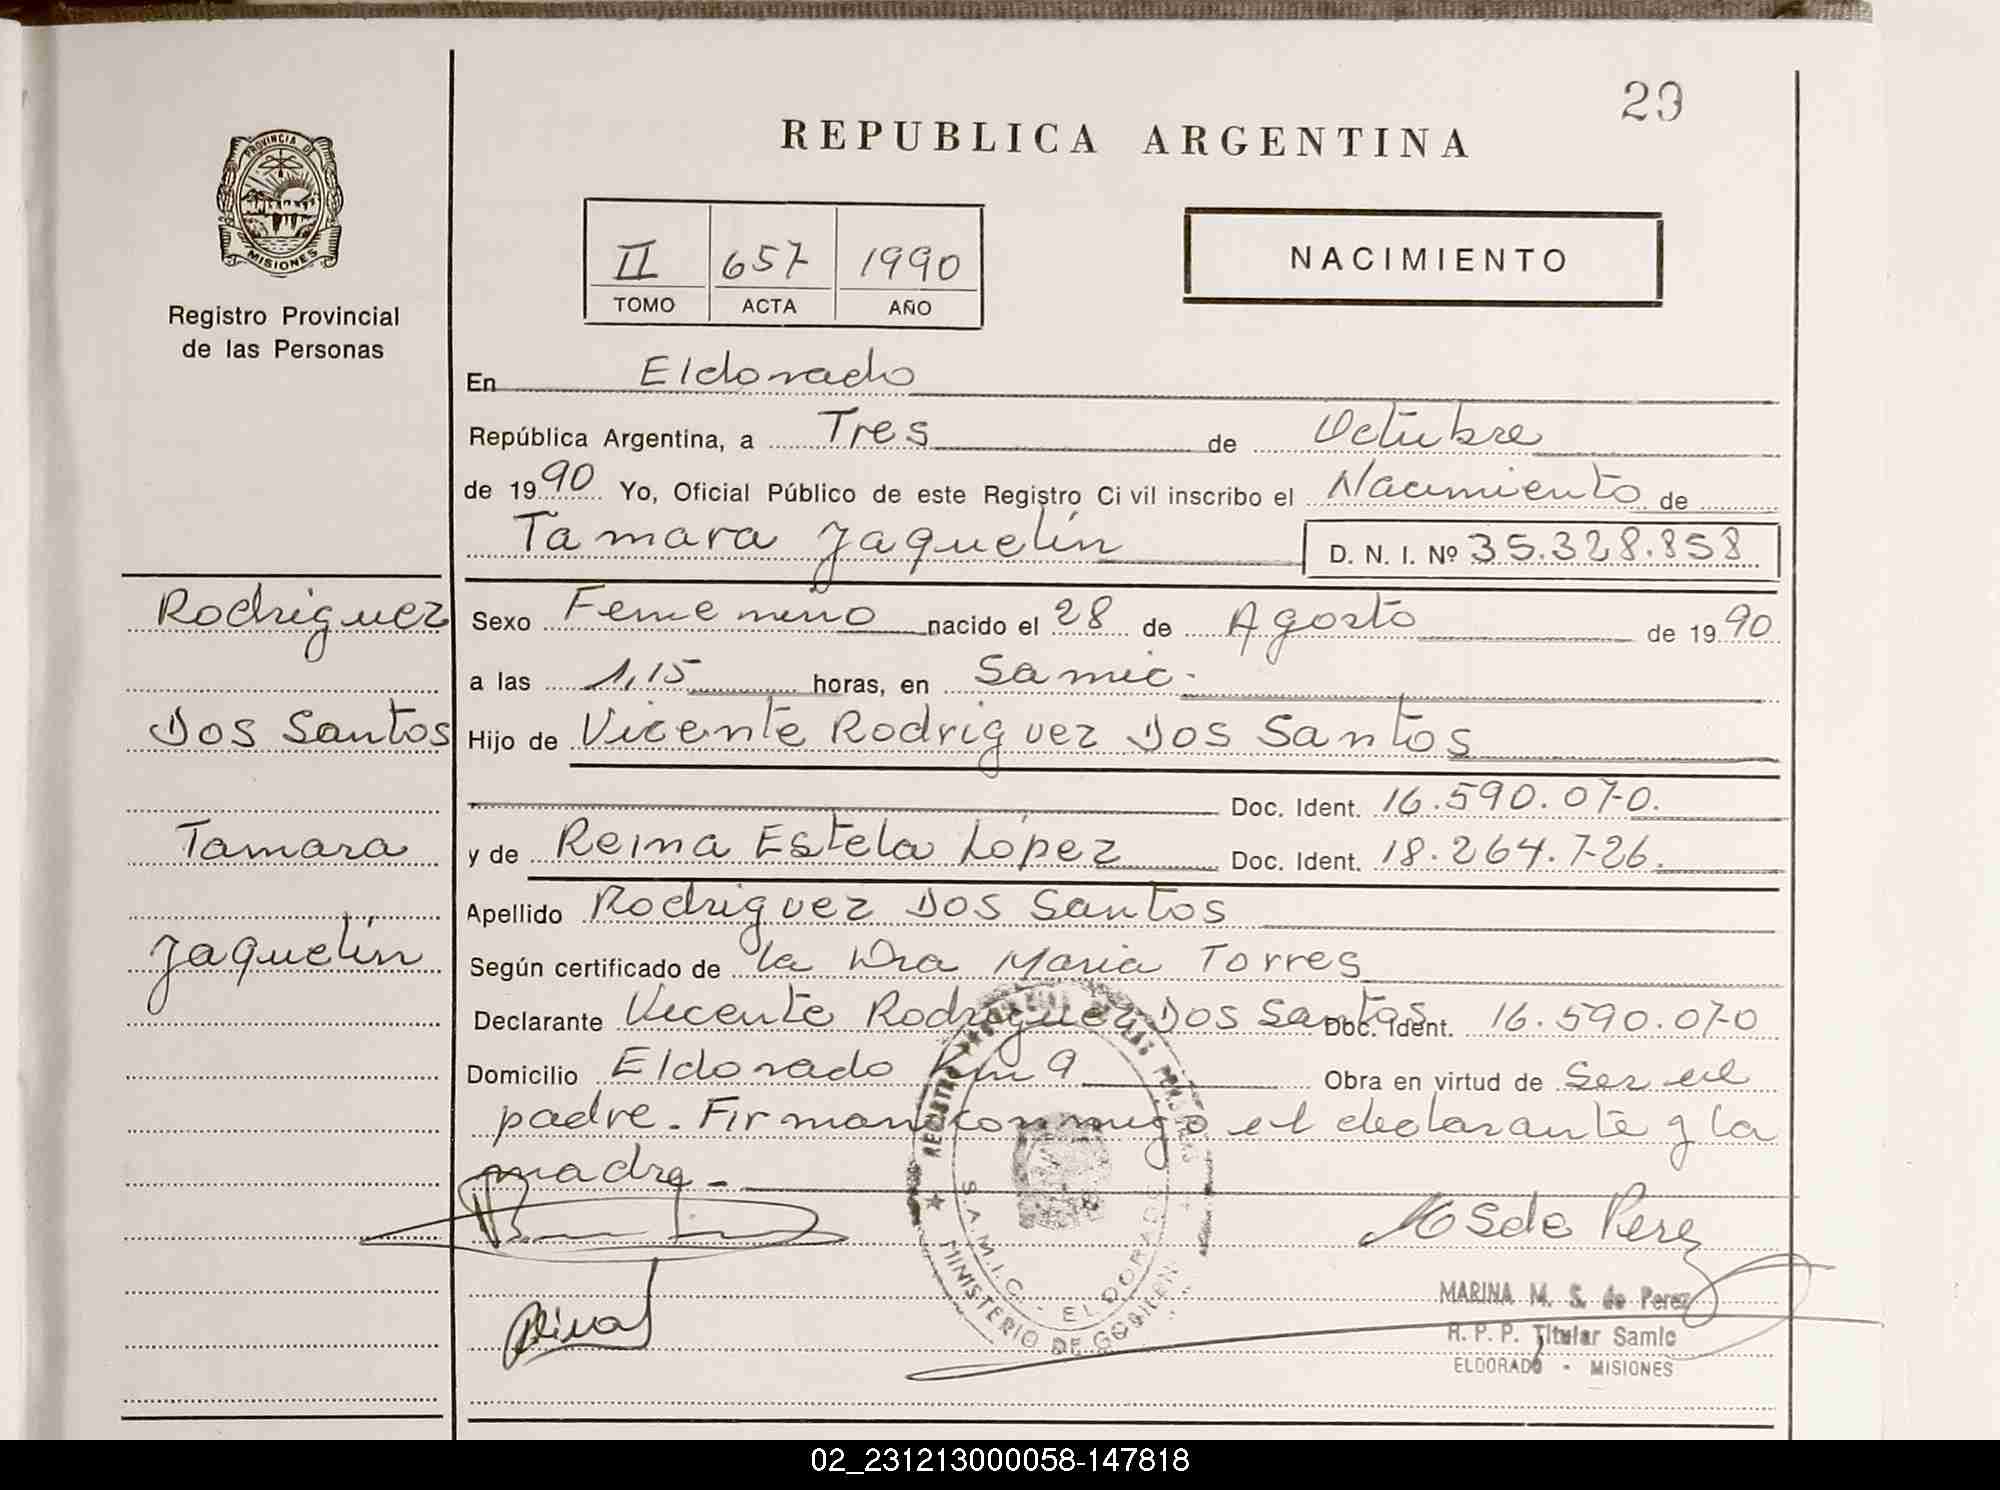 29
REPUBLICA ARGENTINA
PROVINCIA DE
MISIONES
Registro Provincial
de las Personas
II 657 1990
TOMO ACTA AÑO
NACIMIENTO
En Eldorado
República Argentina, a Tres de Octubre
de 1990 Yo, Oficial Público de este Registro Civil inscribo el Nacimiento de
Tamara Jaquelín D. N. I. Nº 35.328.858
Rodriguez
Dos Santos
Tamara
Jaquelín
Sexo Femenino nacido el 28 de Agosto de 1990
a las 1,15 horas, en Samic.
Hijo de Vicente Rodriguez Dos Santos
Doc. Ident. 16.590.070.
y de Reina Estela López Doc. Ident. 18.264.726.
Apellido Rodriguez Dos Santos
Según certificado de la Dra Maria Torres
Declarante Vicente Rodriguez Dos Santos Doc. Ident. 16.590.070
Domicilio Eldorado Km 9 Obra en virtud de ser el
padre. Firman conmigo el declarante y la
madre.-
MSde Perez
MARINA M. S. de Perez
R. P. P. Titular Samic
ELDORADO - MISIONES
S.A.M.I.C. - ELDORADO
MINISTERIO DE GOBIERNO
02_231213000058-147818